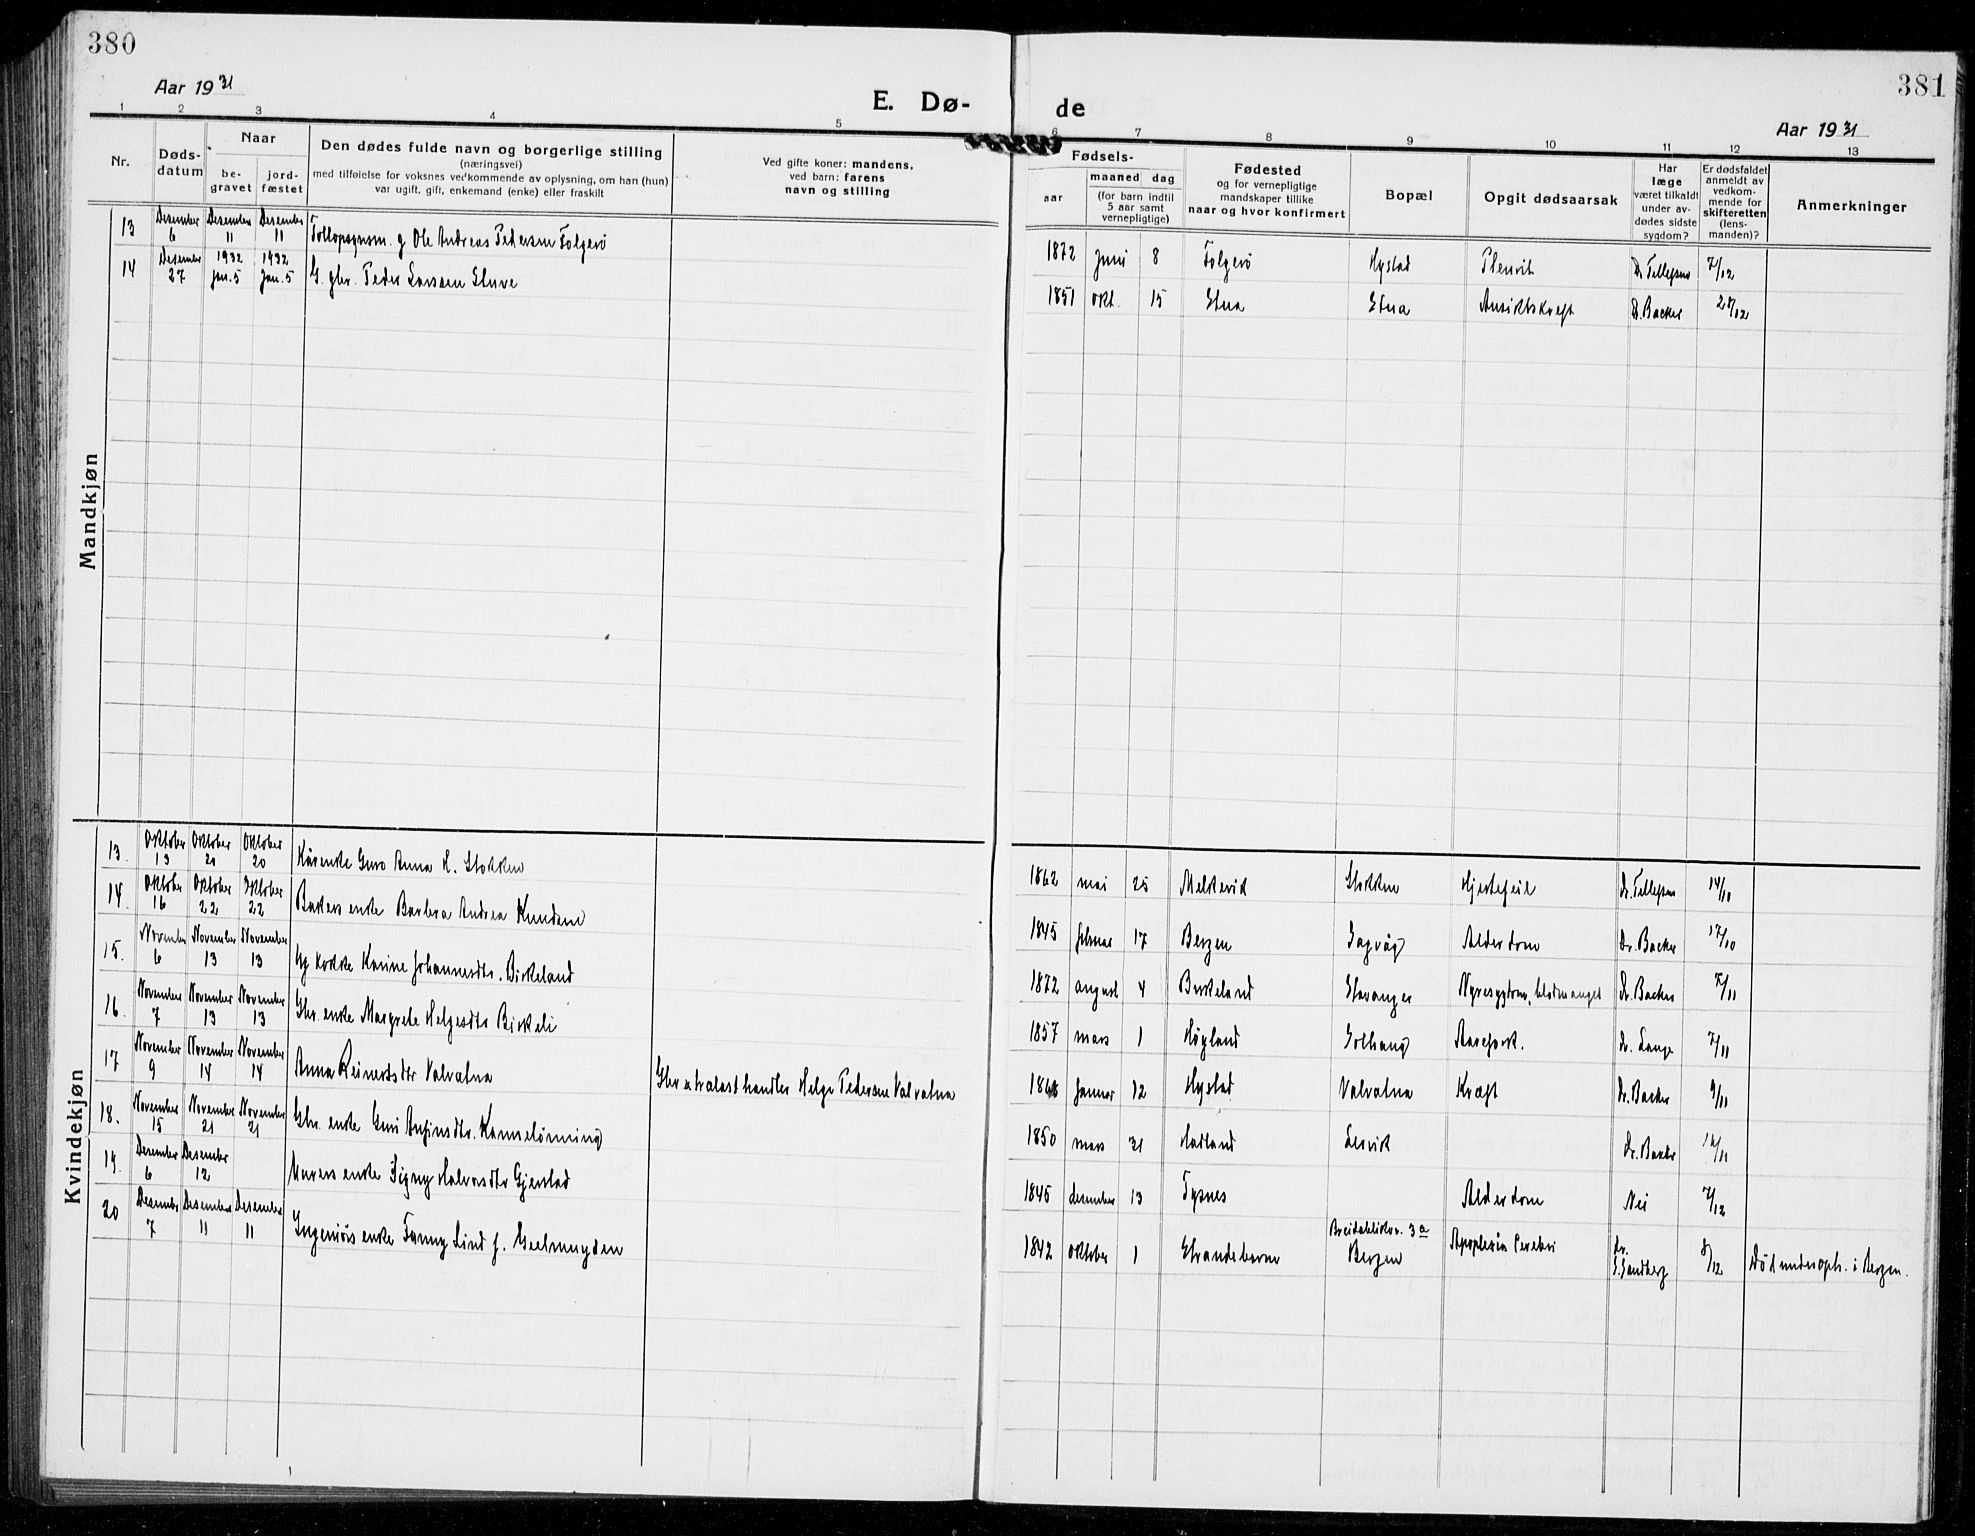 380
Aar 1931
E. Dø-
1 2 3 4 5
Nr.
Døds-
datum
Naar
be-
gravet
jord-
fæstet
Den dødes fulde navn og borgerlige stilling
(næringsvei)
med tilføielse for voksnes vedkommende av oplysning, om han (hun)
var ugift, gift, enkemand (enke) eller fraskilt
Ved gifte koner: mandens,
ved barn: farens
navn og stilling
Mandkjøn
13 Desember 6 Desember 11 Desember 11 g Ole Andreas Pedersen Folgerø
14 Desember 27 1932 Jan. 5 1932 Jan. 5 G. gbr. Peder Larssen Stuve
Kvindekjøn
13. Oktober 13 Oktober 20 Oktober 20 Kårenke Guro Anna H. Stokken
14. Oktober 16 Oktober 22 Oktober 22 Bakers enke Barbra Andrea Knudsen
15. November 6 November 13 November 13 Ug kokke Karine Johannesdtr. Birkeland
16. November 7 November 13 November 13 Gbr. enke Margrete Helgesdtr Birkeli
17 November 9 November 14 November 14 Anna Reinertsdtr Valvatna Gbr o trælasthandler Helge Pedersen Valvatna
18. November 15 November 21 November 21 Gbr. enke Guri Anfinsdtr. Kamselønning
19. Desember 6 Desember 12 Murers enke Signy Halvorsdtr Gjerstad
20 Desember 7 Desember 11 Desember 11 Ingeniørs enke Fanny Lind f. Geelmuyden
381
de
Aar 1931
6 7 8 9 10 11 12 13
Fødsels-
aar
maaned
dag
(for barn indtil
5 aar samt
vernepligtige)
Fødested
og for vernepligtige
mandskaper tillike
naar og hvor konfirmert
Bopæl
Opgit dødsaarsak
Har
læge
været tilkaldt
under av-
dødes sidste
sygdom?
Er dødsfaldet
anmeldt av
vedkom-
mende for
skifteretten
(lens-
manden)?
Anmerkninger
1872 Juni 8 Folgerø Hystad Plevrit Dr Tellefsen 7/12
1851 okt. 15 Stua Stua Ansiktskræft Dr. Backer 28/12
1862 mai 25 Melkevik Stokken Hjertefeil Dr. Tellefsen 14/10
1845 februar 17 Bergen Sagvåg Alderdom Dr. Backer 17/10
1872 august 4 Birkeland Stavanger Nyresygdom, blodmangel Dr. Backer 7/11
1857 mars 1 Høyland Solhaug Aarefork. Dr. Lange 7/11
1868 Januar 12 Hystad Valvatna Kræft Dr. Backer 9/11
1850 mars 21 Hadland Lervik Dr. Backer 16/11
1845 desember 13 Tysnes Alderdom Nei 7/12
1842 oktober 1 Strandebarm Breidablikkv. 3a Bergen Apoplexia Cerebri dr. S. Sandberg 8/12 Død under oph. i Bergen.